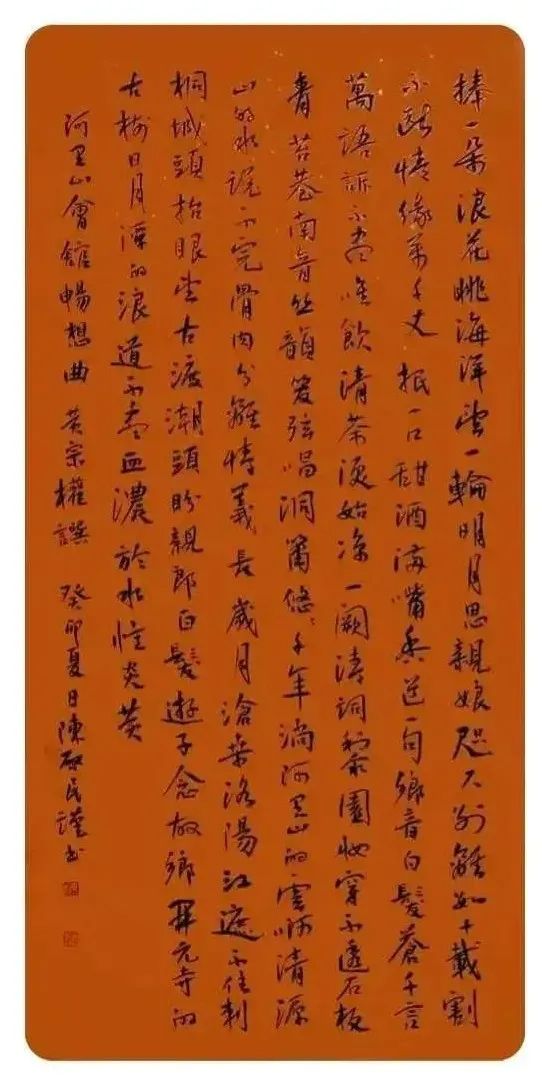 捧一朵浪花眺海洋望一輪明月思親娘咫尺別離如十載割
不斷情緣萬千丈抿一口甜酒滿嘴香送一句鄉音白髮蒼千言
萬語訴不盡唯飲清茶始涼一闕清詞梨園妝穿不透石板
青苔巷南音丝韻弦唱洞簫悠悠千年淌阿里山的雲啊清源
山的水說不完骨肉分離情義長歲月滄桑洛陽江遮不住刺
桐城頭抬眼望古渡潮頭盼親郎白髮遊子念故鄉開元寺的
古樹日月潭的浪道不盡血濃於水炎黃
阿里山會館暢想曲 黃宗權譔 癸卯夏日陳啟民謹書